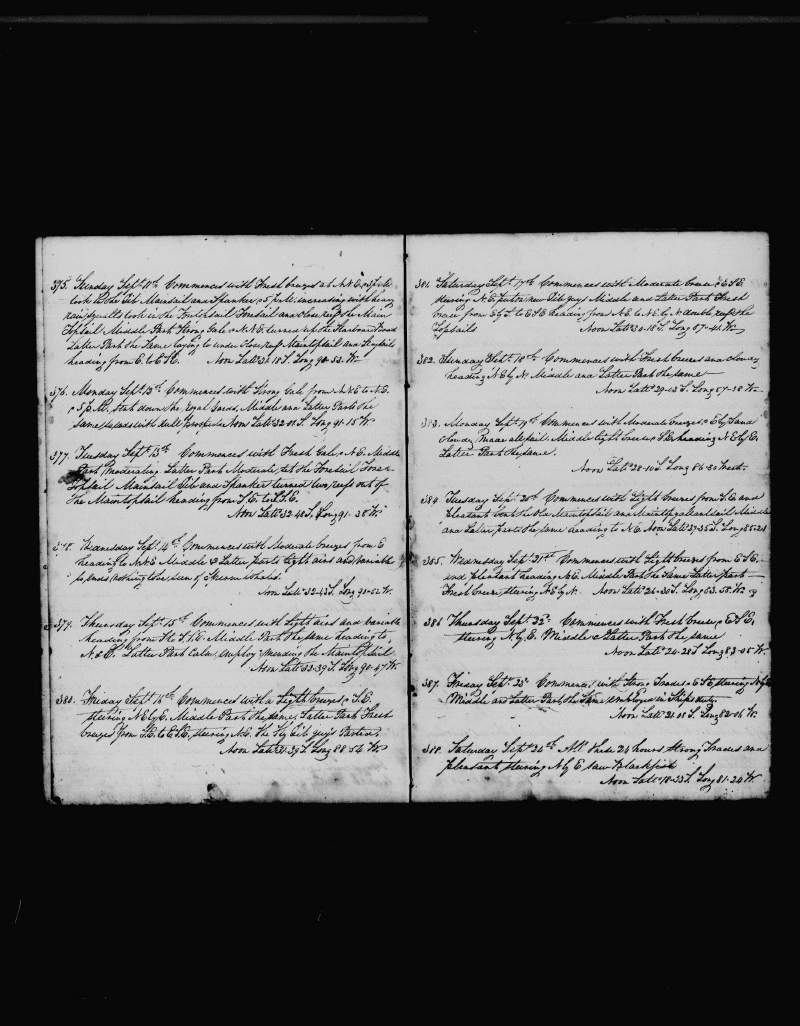 375. Sunday Sept 11th Commences with Fresh breezes at N.N.E.
took in the Jib Mainsail and Spanker 5 P.M. increasing with heavy
rain squalls took in the Foretopsail Foresail and close reef the Main
Topsail Middle Part Strong Gale N.N.E. turned up the Larboard
Latter Part the Same laying to under Close reef Maintopsail and
heading from E. to ESE. Noon Latt 31.18 S. Long 90.53 W.
376. Monday Sept 12th Commences with Strong Gale from N.N.E to N.E.
5 P.M. sent down the Royal Yards. Middle and Latter Parts the
Same Noon Latt 32.01 S. Long 91.15 W.
377. Tuesday Sept 13th Commences with Fresh Gale N.E. Middle
Part Moderating Latter Part Moderate, set the Foresail Fore
Topsail Mainsail Jib and Spanker turned two reefs out of
the Maintopsail heading from S.E. to S.S.E.
Noon Latt 32.42 S. Long 91.35 W.
378. Wednesday Sept 14th Commences with Moderate breezes from E
heading to N.N.E Middle & Latter parts Light airs and variable
so, ends nothing to be seen of Sperm whales.
Noon Latt 32.43 S. Long 90.52 W.
379. Thursday Sept 15th Commences with Light airs and variable
heading from to Middle Part the Same heading to
N.E. Latter Part Calm, employ, mending the Maintopsail
Noon Latt 32.39 S. Long 90.47 W.
380. Friday Sept 16th Commences with a Light breezes S.E.
steering N.E by E. Middle Part the Same, Latter Part Fresh
breezes from S.E. to E.S.E, steering N.E. the Fly Jib guys Parted,
Noon Latt 31.39 S. Long 88.54 W.
381. Saturday Sept 17th Commences with Moderate breeze E.S.E.
steering N.E. put on new Jib guys Middle and Latter Part Fresh
breeze from E by S to E.S.E heading from N.E. to N.E. by N. double reef the
Topsails Noon Latt 30.18 S. Long 87.41 W.
382. Sunday Sept 18th Commences with Fresh breezes and cloudy
heading N.E by N. Middle and Latter Part the Same
Noon Latt 29.13 S. Long 87.38 W.
383. Monday Sept 19th Commences with Moderate breezes, E by S and
cloudy, made all sail. Middle Light breezes heading N.E by E.
Latter Part the Same.
Noon Latt 28.10 S. Long 86.30 West.
384. Tuesday Sept 20th Commences with Light breezes from S.E. and
pleasant bent the Old Maintopsail and Maintopgallantsail Middle
and Latter parts the same heading to N.E. Noon Latt 27.35 S. Long 85.21
385. Wednesday Sept 21st Commences with Light breezes from E.S.E.
and pleasant heading N.E. Middle Part the Same Latter part
Fresh breeze, steering N.E by N. Noon Latt 26.30 S. Long 83.58 W.
386 Thursday Sept 22d Commences with Fresh breezes E.S.E.
steering N. by E. Middle & Latter Part the Same
Noon Latt 24.28 S. Long 83.05 W.
387. Friday Sept 23d Commences, with Strong Trades E.S.E, steering N by E
Middle and Latter Part the Same employed in Ships duty.
Noon Latt 21.01 S. Long 82.06 W.
388. Saturday Sept 24th All these 24 hours Strong Trades and
pleasant steering N by E. saw Blackfish
Noon Latt 18.33 S. Long 81.24 W.